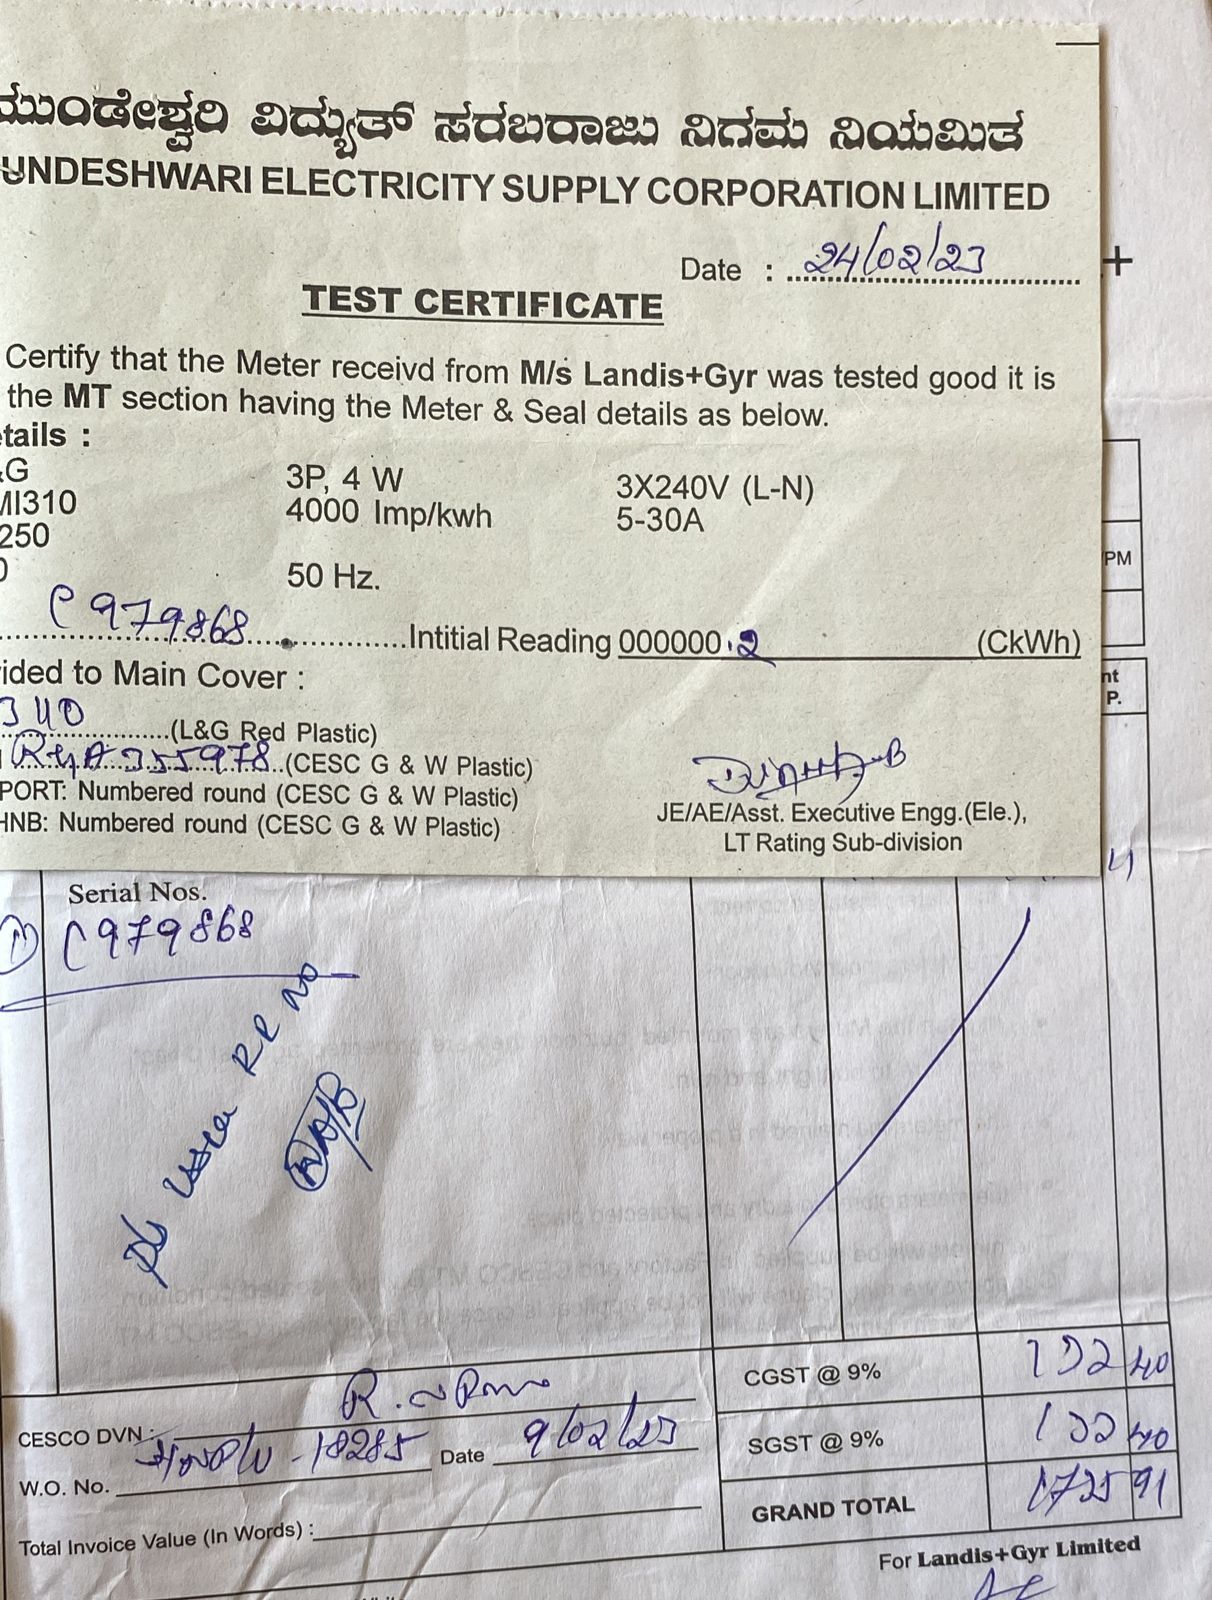 ಮುಂಡೇಶ್ವರಿ ವಿದ್ಯುತ್ ಸರಬರಾಜು ನಿಗಮ ನಿಯಮಿತ
UNDESHWARI ELECTRICITY SUPPLY CORPORATION LIMITED
Date : 24/02/23
+
TEST CERTIFICATE
Certify that the Meter receivd from M/s Landis+Gyr was tested good it is
the MT section having the Meter & Seal details as below.
etails :
&G 3P, 4 W 3X240V (L-N)
MI310 4000 Imp/kwh 5-30A
250
0 50 Hz.
PM
C979868 Intitial Reading 000000.2 (CkWh)
vided to Main Cover :
nt
P.
340 (L&G Red Plastic)
355978 (CESC G & W Plastic)
PORT: Numbered round (CESC G & W Plastic)
HNB: Numbered round (CESC G & W Plastic)
JE/AE/Asst. Executive Engg.(Ele.),
LT Rating Sub-division
Serial Nos.
1) C979868
RR NO
CGST @ 9% 132 40
CESCO DVN :
SGST @ 9% 132 40
W.O. No. 18285 Date 9/02/23
GRAND TOTAL 1725 91
Total Invoice Value (In Words) :
For Landis+Gyr Limited